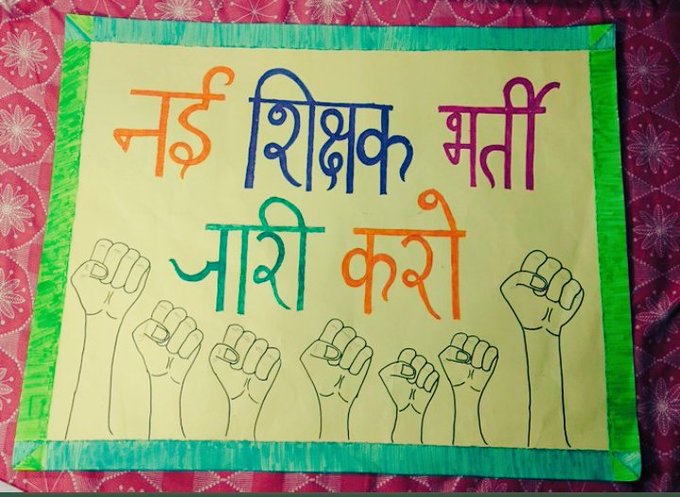 नई शिक्षक भर्ती
जारी करो